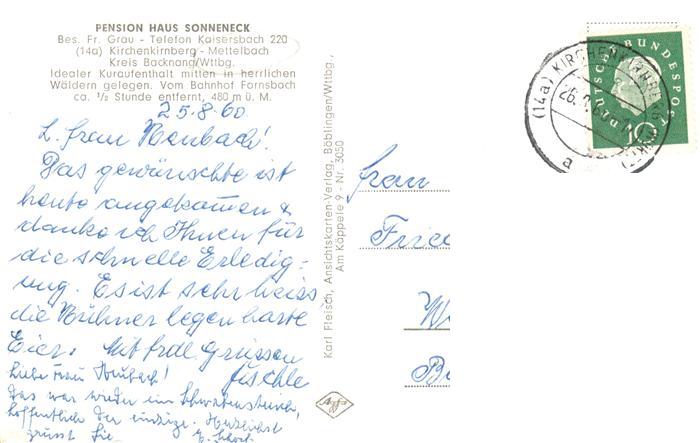 PENSION HAUS SONNENECK
Bes. Fr. Grau - Telefon Kaisersbach 220
(14a) Kirchenkirnberg - Mettelbach
Kreis Backnang/Wttbg.
Idealer Kuraufenthalt mitten in herrlichen
Wäldern gelegen. Vom Bahnhof Fornsbach
ca. ½ Stunde entfernt, 480 m ü. M.
25.8.60
L. Frau Neubach!
Das gewünschte ist
heute angekommen &
danke ich Ihnen für
die schnelle Erledig-
ung. Es ist sehr heiss,
die Hühner legen harte
Eier. Mit frdl. Grüssen
Jüschle
Liebe Frau Neubach!
Das war wieder ein Schwabenstreich,
hoffentlich der einzige. Herzlichst
grüsst Sie
Karl Fleisch, Ansichtskarten-Verlag, Böblingen/Wttbg.,
Am Käppele 9 - Nr. 3050
Agfa
Frau
DEUTSCHE BUNDESPOST
10
(14a) KIRCHENKIRNBERG
a